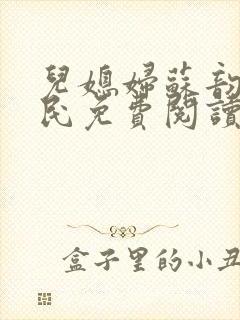 兒媳婦蘇韵
民免費閱讀
盒子里的小丑